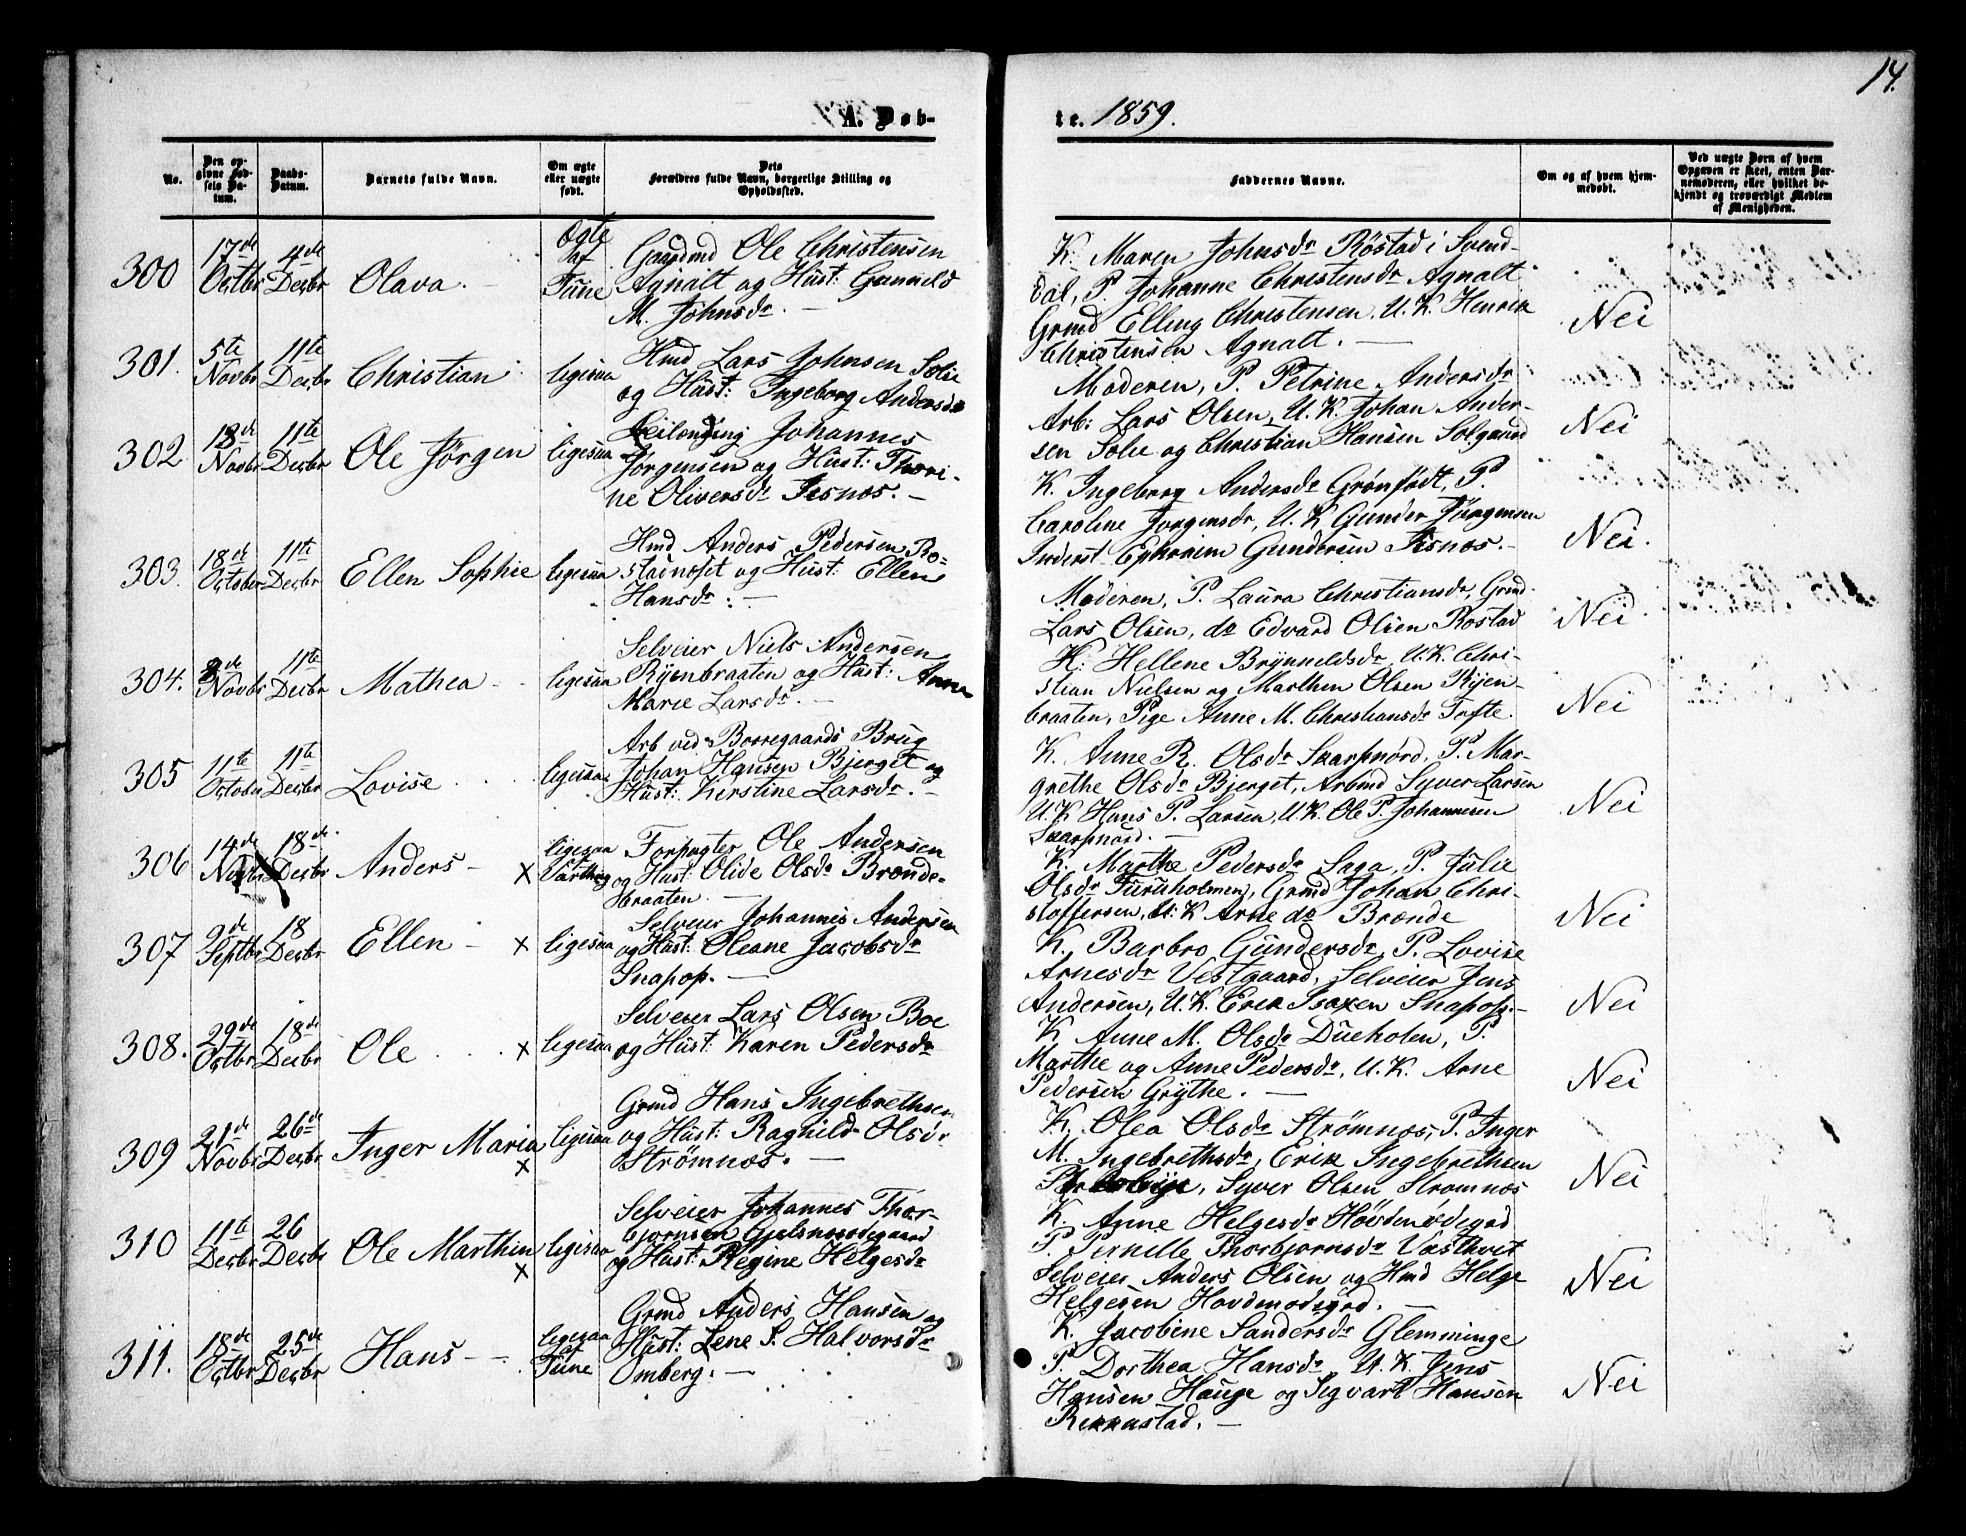 14.
A. Døb-
te. 1859.
No.
Den op-
givne Fød-
sels Da-
tum.
Daabs-
Datum.
Barnets fulde Navn.
Om ægte
eller uægte
født.
Dets
Forældres fulde Navn, borgerlige Stilling og
Opholdssted.
Faddernes Navne.
Om og af hvem hjem-
medøbt.
Ved uægte Børn af hvem
Opgaven er skeet, enten Bar-
nemoderen, eller hvilket be-
kjendt og troværdigt Medlem
af Menigheden.
300
17de
Octbr
4de
Decbr
Olava.
Ægte
af
Tune
Gaardmd Ole Christensen
Agnalt og Hust: Gunnild
M. Johnsdr.
K. Maren Johnsdr Röstad i Svend-
dal, P. Johanne Christensdr Agnalt
Grmd Elling Christensen, U.K. Henrik
Christensen Agnalt.
Nei
301.
5te
Novbr
11te
Decbr
Christian
ligesaa
Hmd Lars Johnsen Solie
og Hust: Ingeborg Andersdr
Moderen, P. Petrine Andersdr
Arb: Lars Olsen, U.K. Johan Ander-
sen Solie og Christian Hansen Solgaard
Nei
302
13de
Novbr
11te
Decbr
Ole Jörgen
ligesaa
Leilending Johannes
Jörgensen og Hust: Thori-
ne Oliversdr Isnæs.
K. Ingeborg Andersdr Grönfödt, P.
Caroline Jörgensdr, U.K Gunder Jörgensen
Inderst Ephraim Gundersen Isnæs.
Nei.
303.
18de
October
11te
Decbr
Ellen Sophie
ligesaa
Hmd Anders Pedersen Ro-
stadnæset og Hust: Ellen
Hansdr.
Moderen, P. Laura Christiansdr, Grmd
Lars Olsen, do Edvard Olsen Rostad
Nei
304.
8de
Novbr
11te
Decbr
Mathea
ligesaa
Selveier Niels Andersen
Ryenbraaten og Hust: Anne
Marie Larsdr.
K: Hellene Brynneldsdr, U.K. Chri-
stian Nielsen og Marthin Olsen Ryen-
braaten, Pige Anne M. Christiansdr Tofte.
Nei
305
11te
October
11te
Decbr
Lovise
ligesaa
Arb ved Borregaards Brug
Johan Hansen Bjerget og
Hust: Kirstine Larsdr.
K. Anne R. Olsdr Skarpnord, P. Mar-
grethe Olsdr Bjerget, Arbmd Syver Larsen
U.K Hans P. Larsen, U.K. Ole P. Johannesen
Skarpnord.
Nei
306
14de
Novbr
18de
Decbr
Anders
x
ligesaa
Varteig
Forpagter Ole Andersen
og Hust: Olide Olsdr Brænde-
braaten
K. Marthe Pedersdr Saga, P. Julie
Olsdr Furuholmen, Grmd Johan Chri-
stoffersen, U.K Arne do Brænde
Nei
307
9de
Septbr
18
Decbr
Ellen
x
ligesaa
Selveier Johannes Andersen
og Hust: Oleane Jacobsdr
Snapop.
K. Barbro Gundersdr, P. Lovise
Arnesdr Vestgaard, Selveier Jens
Andersen, U.K. Erik Isaksen Snapop.
Nei
308.
29de
Octbr
18de
Decbr
Ole
x
ligesaa
Selveier Lars Olsen Boe
og Hust: Karen Pedersdr
K Anne M. Olsdr Dueholen, P.
Marthe og Anne Pedersdr, U.K. Arne
Pedersen Grythe.
Nei
309
21de
Novbr
26de
Decbr
Inger Maria
x
ligesaa
Grmd Hans Ingebrethsen
og Hust: Ragnild Olsdr
Strömnæs.
K. Olea Olsdr Strömnæs, P. Inger
M. Ingebrethsdr, Erik Ingebrethsen
Syver Olsen Stromnæs
Nei
310
11te
Decbr
26
Decbr
Ole Marthin
x
ligesaa
Selveier Johannes Thor-
björnsen Gjelsnesødegaard
og Hust: Regine Helgesdr
K. Anne Helgesdr Hövdmödegrd
P. Pernille Thorbjørnsdr Vasthvet
Selveier Anders Olsen og Hmd Helge
Helgesen Hovdmodegrd.
Nei
311.
18de
Octbr
25de
Decbr
Hans
ligesaa
af
Tune
Grmd Anders Hansen og
Hust: Lene S. Halvorsdr
Omberg.
K. Jacobine Sandersdr Glemminge
P. Dorthea Hansdr, U.K. Jens
Hansen Hauge og Sigvart Hansen
Rekkustad.
Nei